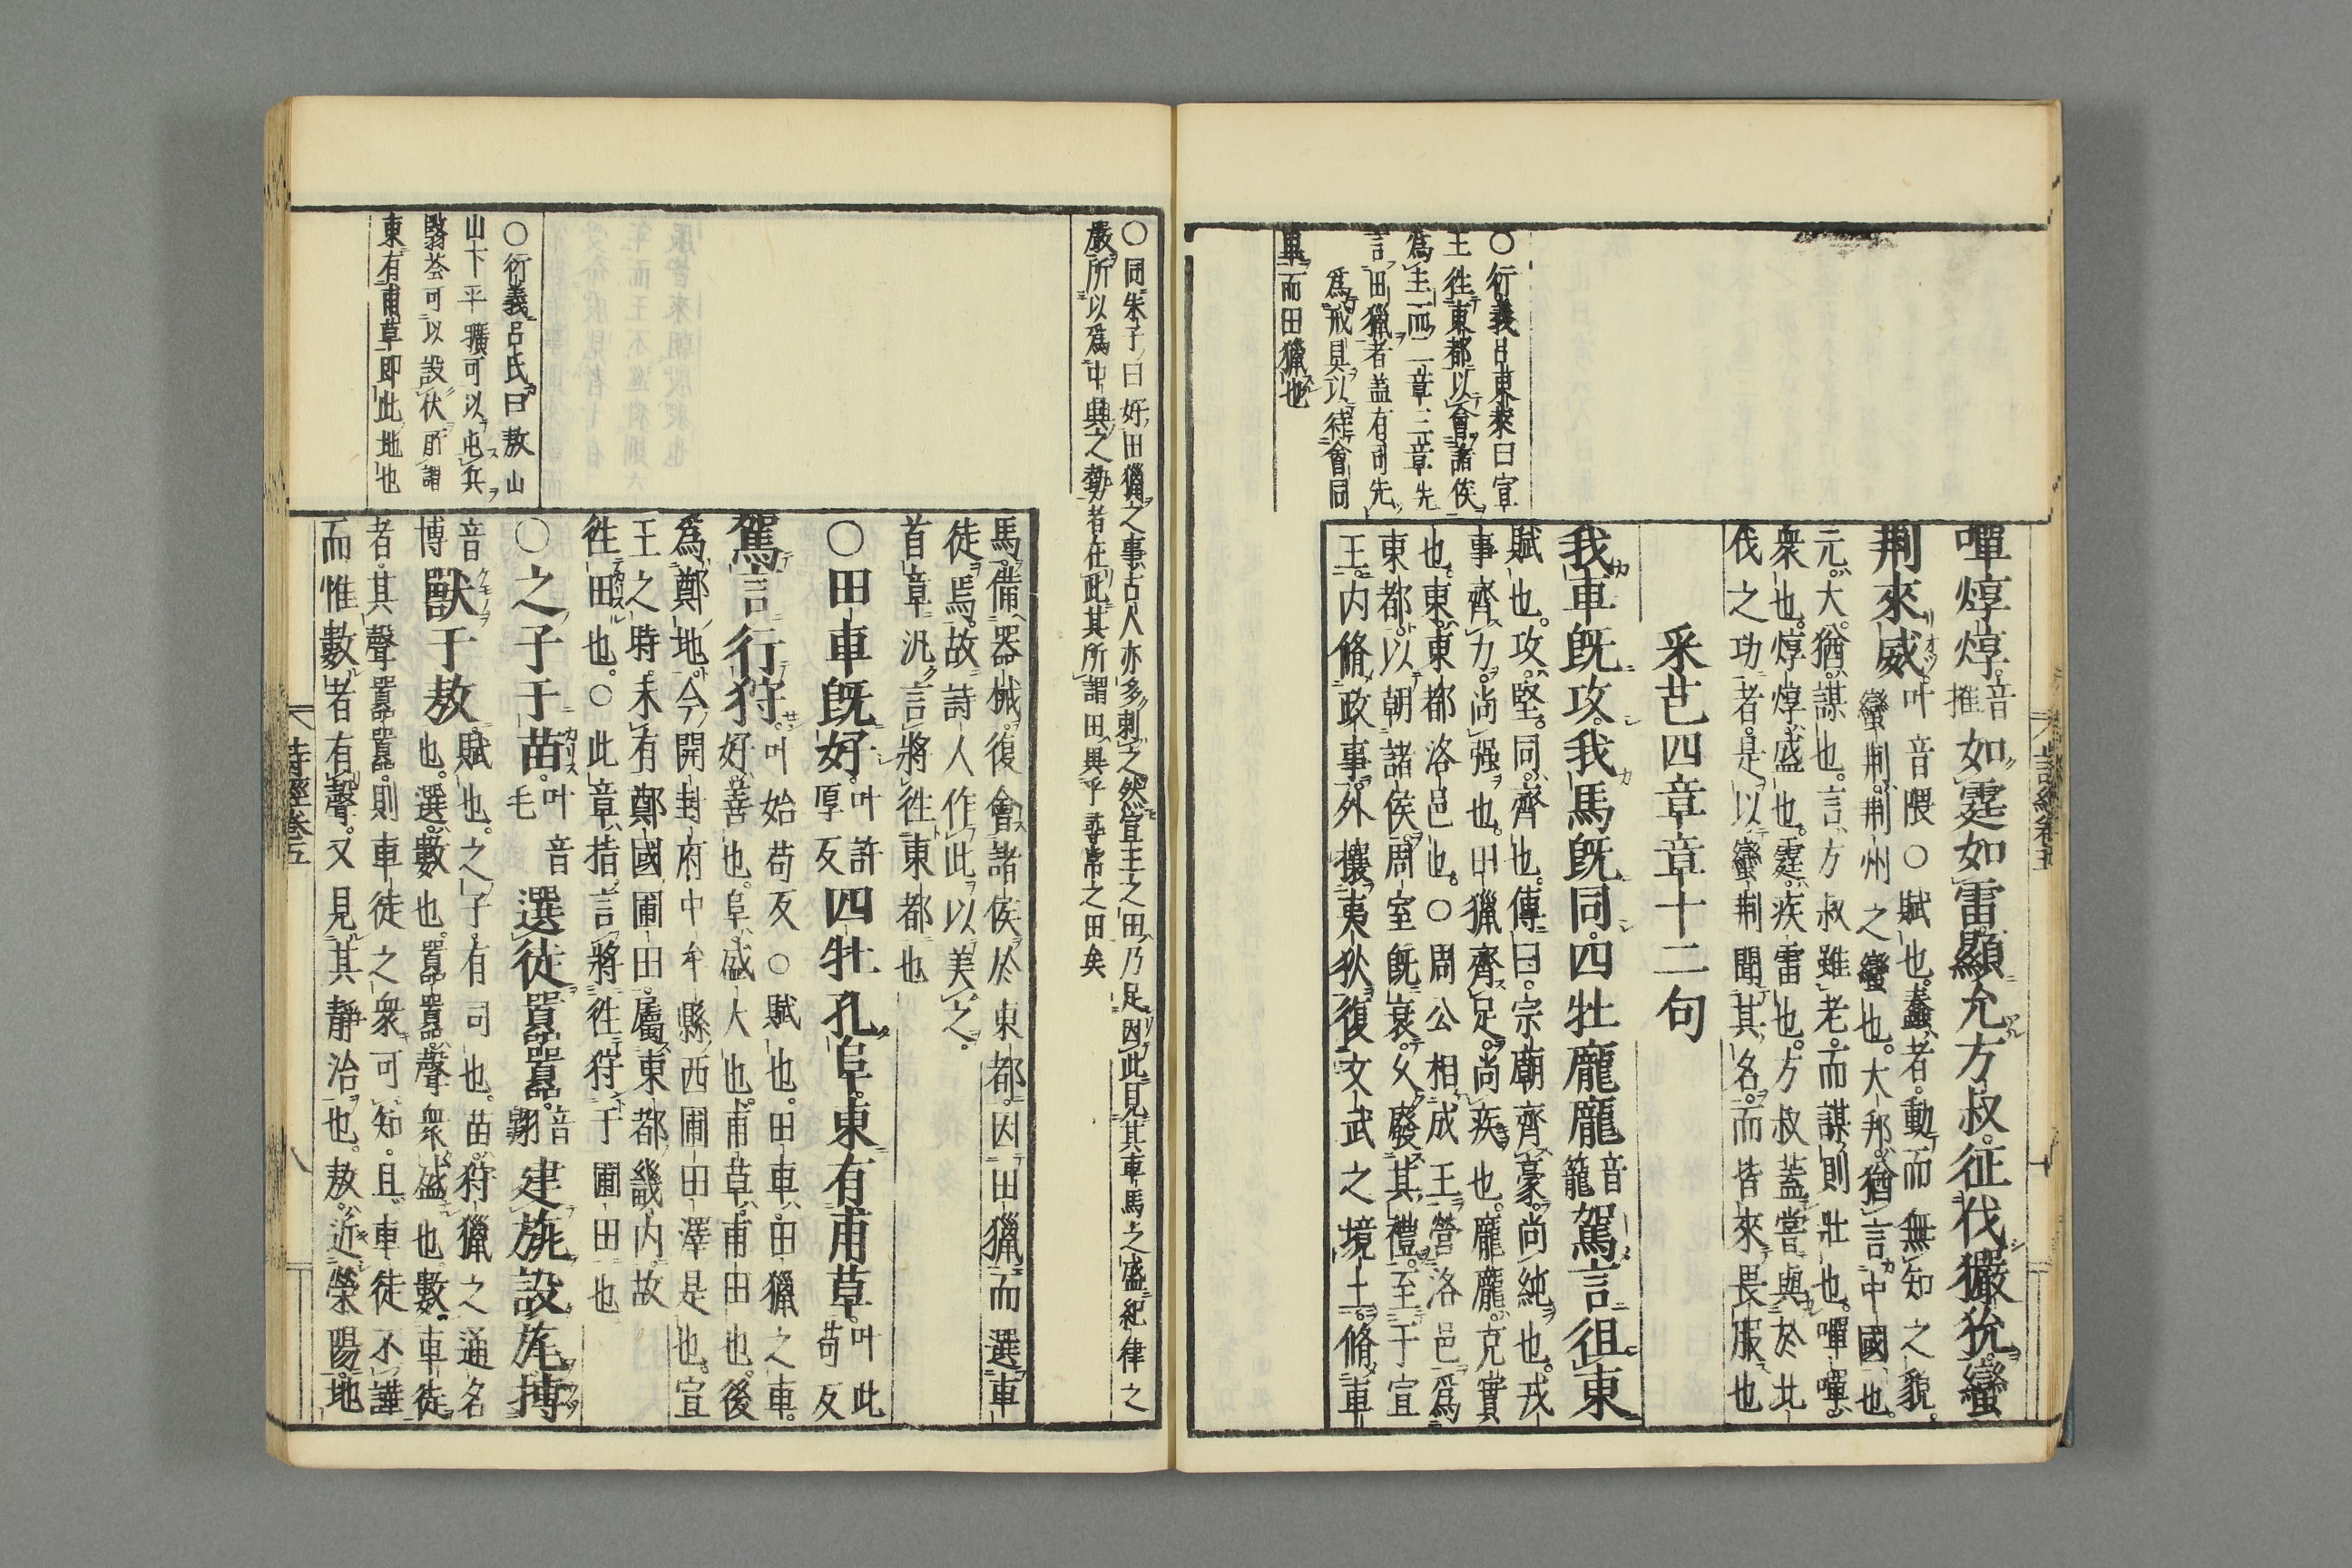 嘽焞焞音推如霆如雷顯允方叔征伐玁狁蠻
荆來威叶音隈○賦也蠢者動而無知之貌
蠻荆荆州之蠻也大邦猶言中國也
元大猶謀也言方叔雖老而謀則壯也嘽嘽
衆也焞焞盛也霆疾雷也方叔蓋嘗與於北
伐之功者是以蠻荆聞其名而皆來畏服也
采芑四章章十二句
我車既攻我馬既同四牡龐龐音籠駕言徂東
賦也攻堅同齊也傳曰宗廟齊豪尚純也戎
事齊力尚强也田獵齊足尚疾也龐龐充實
也東東都洛邑也○周公相成王營洛邑爲
東都以朝諸侯周室既衰久廢其禮至于宣
王内脩政事外攘夷狄復文武之境土脩車
○衍義呂東萊曰宣
王徃東都以會諸侯
爲主 二章三章先
言田獵者蓋有司先
爲戒具以待會同
車而田獵也
詩經卷五
○同朱子曰好田獵之事古人亦多刺之然宣王之田乃足因此見其車馬之盛紀律之
嚴所以爲中興之勢者在此其所謂田異乎尋常之田矣
馬備器械復會諸侯於東都因田獵而選車
徒焉故詩人作此以美之
首章汎言將徃東都也
○田車既好叶許厚反四牡孔阜東有甫草叶此苟反
駕言行狩叶始苟反○賦也田車田獵之車
好善也阜盛大也甫草甫田也後
爲鄭地今開封府中牟縣西圃田澤是也宣
王之時未有鄭國圃田屬東都畿内故
徃田也○此章指言將徃狩于圃田也
○之子于苗叶音毛選徒囂囂音翺建旐設旄搏
音博獸于敖賦也之子有司也苗狩獵之通名
也選數也囂囂聲衆盛也數車徒
者其聲囂囂則車徒之衆可知且車徒不譁
而惟數者有聲又見其靜治也敖近滎陽地
○衍義呂氏曰敖山
山下平曠可以屯兵
翳荟可以設伏所謂
東有甫草即此地也
詩經卷五